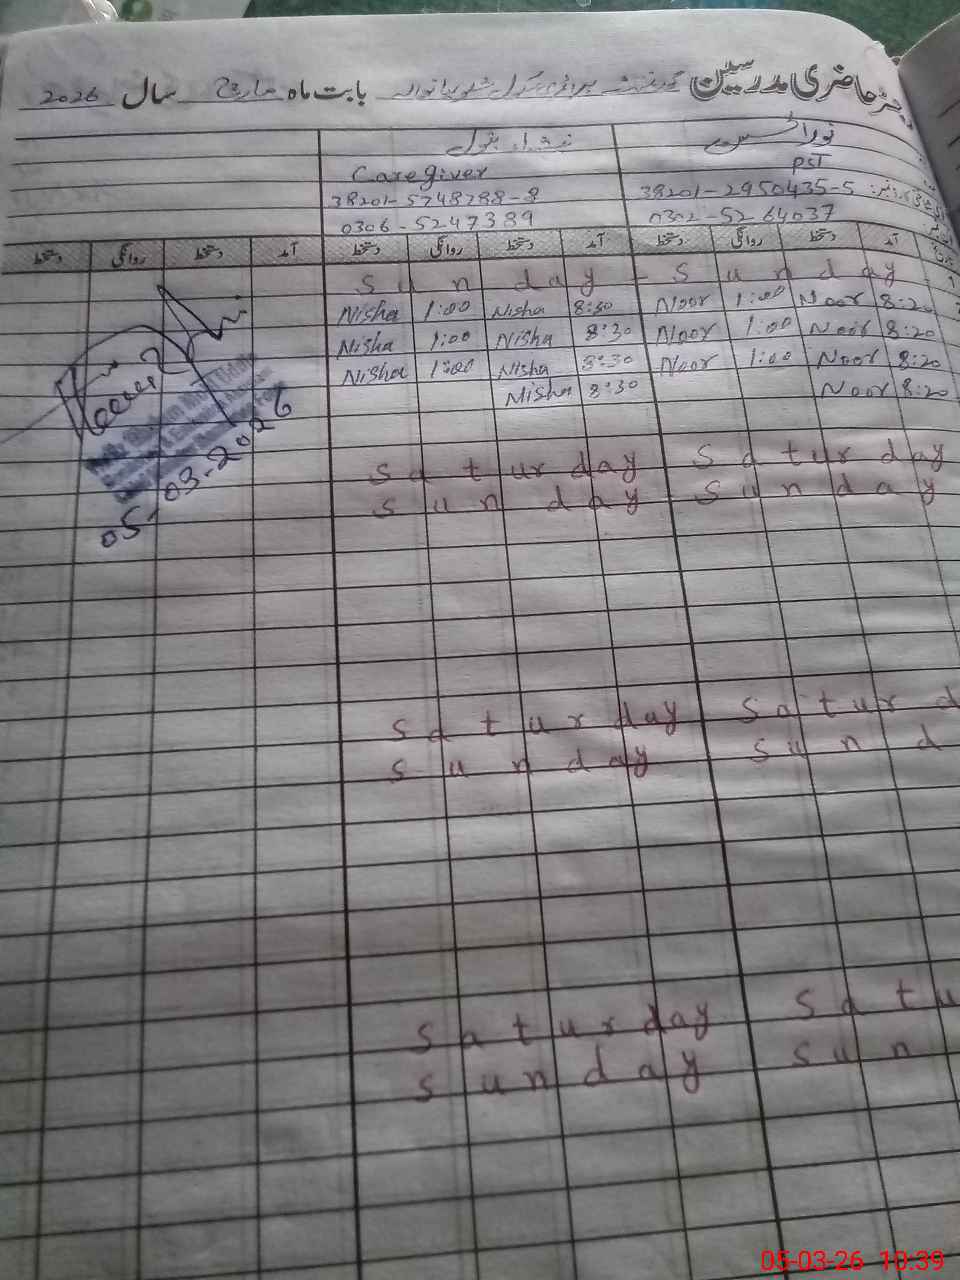 رجسٹر حاضری مدرسین گورنمنٹ پرائمری سکول بابت ماہ مارچ سال 2026
نشاء بتول
Caregiver PST
38201-5748788-8 38201-2950435-5
0306-5247389 0302-5264037
آمد دستخط روانگی دستخط آمد دستخط روانگی دستخط آمد دستخط روانگی دستخط
Sunday Sunday
Nisha 1:00 Nisha 8:30 Noor 1:00 Noor 8:20
Nisha 1:00 Nisha 8:30 Noor 1:00 Noor 8:20
Nisha 1:00 Nisha 8:30 Noor 1:00 Noor 8:20
Nisha 8:30 Noor 8:20
05-03-2026
Saturday Saturday
Sunday Sunday
Saturday Saturd
Sunday Sund
Saturday Satu
Sunday Sun
05-03-26 10:39